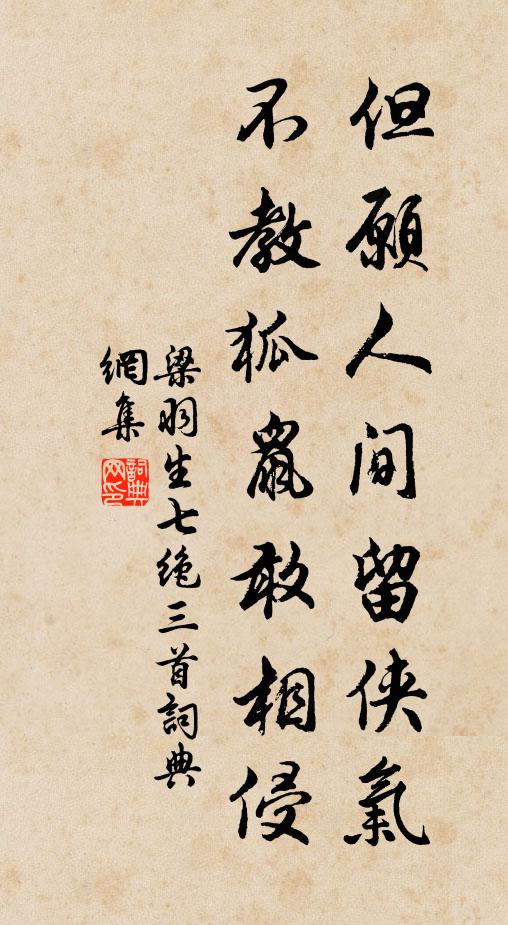 但願人间留俠氣
不教狐鼠敢相侵
梁羽生七绝三首詞典
網集
詞典
网印